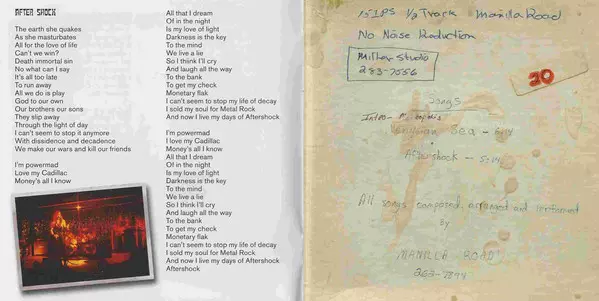 AFTER SHOCK
The earth she quakes
As she masturbates
All for the love of life
Can't we win?
Death immortal sin
No what can I say
It's all too late
To run away
All we do is play
God to our own
Our brothers our sons
They slip away
Through the light of day
I can't seem to stop it anymore
With dissidence and decadence
We make our wars and kill our friends
I'm powermad
Love my Cadillac
Money's all I know
All that I dream
Of in the night
Is my love of light
Darkness is the key
To the mind
We live a lie
So I think I'll cry
And laugh all the way
To the bank
To get my check
Monetary flak
I can't seem to stop my life of decay
I sold my soul for Metal Rock
And now I live my days of Aftershock
I'm powermad
I love my Cadillac
Money's all I know
All that I dream
Of in the night
Is my love of light
Darkness is the key
To the mind
We live a lie
So I think I'll cry
And laugh all the way
To the bank
To get my check
Monetary flak
I can't seem to stop my life of decay
I sold my soul for Metal Rock
And now I live my days of Aftershock
Aftershock
15 IPS 1/2 Track Manilla Road
No Noise Reduction
Miller Studio
283-7056
20
Songs
Intro -
Sea -
Aftershock -
All songs composed, arranged and performed
By
MANILLA ROAD